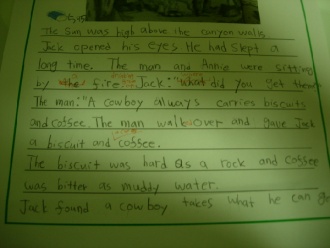 The Sun was high above the canyon walls.
Jack opened his eyes. He had slept a
long time. The man and Annie were sitting
by the fire. Jack: "What did you get them
The man: "A cowboy always carries biscuits
and coffee. The man walk over and gave Jack
a biscuit and coffee.
The biscuit was hard as a rock and coffee
was bitter as muddy water.
Jack found a cowboy takes what he can